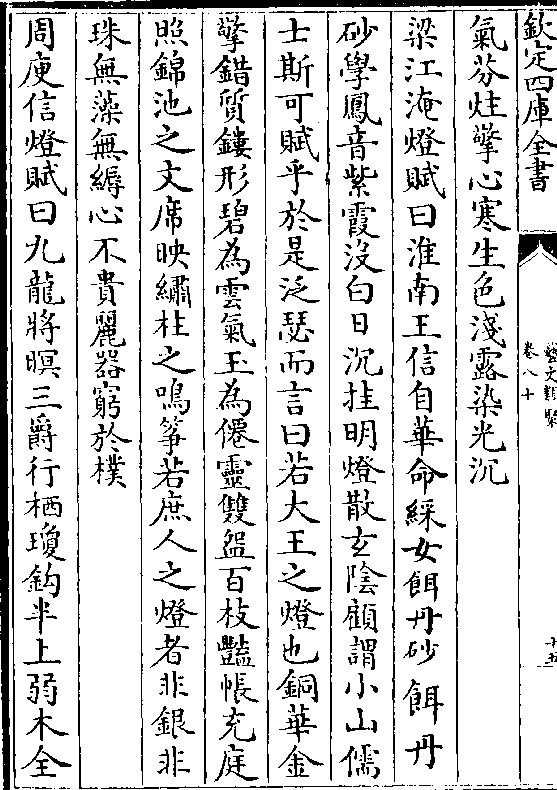 欽定四庫全書
藝文類聚
卷八十
十五
氣芬炷擎心寒生色淺露染光沉
梁江淹燈賦曰淮南王信自華命綵女餌丹砂餌丹
砂學鳳音紫霞沒白日沉挂明燈散玄陰顧謂小山儒
士斯可賦乎於是泛瑟而言曰若大王之燈也銅華金
擎錯質鏤形碧為雲氣玉為僊靈雙盌百枝豔帳充庭
照錦池之文席映繡柱之鳴箏若庶人之燈者非銀非
珠無藻無縟心不貴麗器窮於樸
周庾信燈賦曰九龍將暝三爵行栖瓊鈎半上弱木全